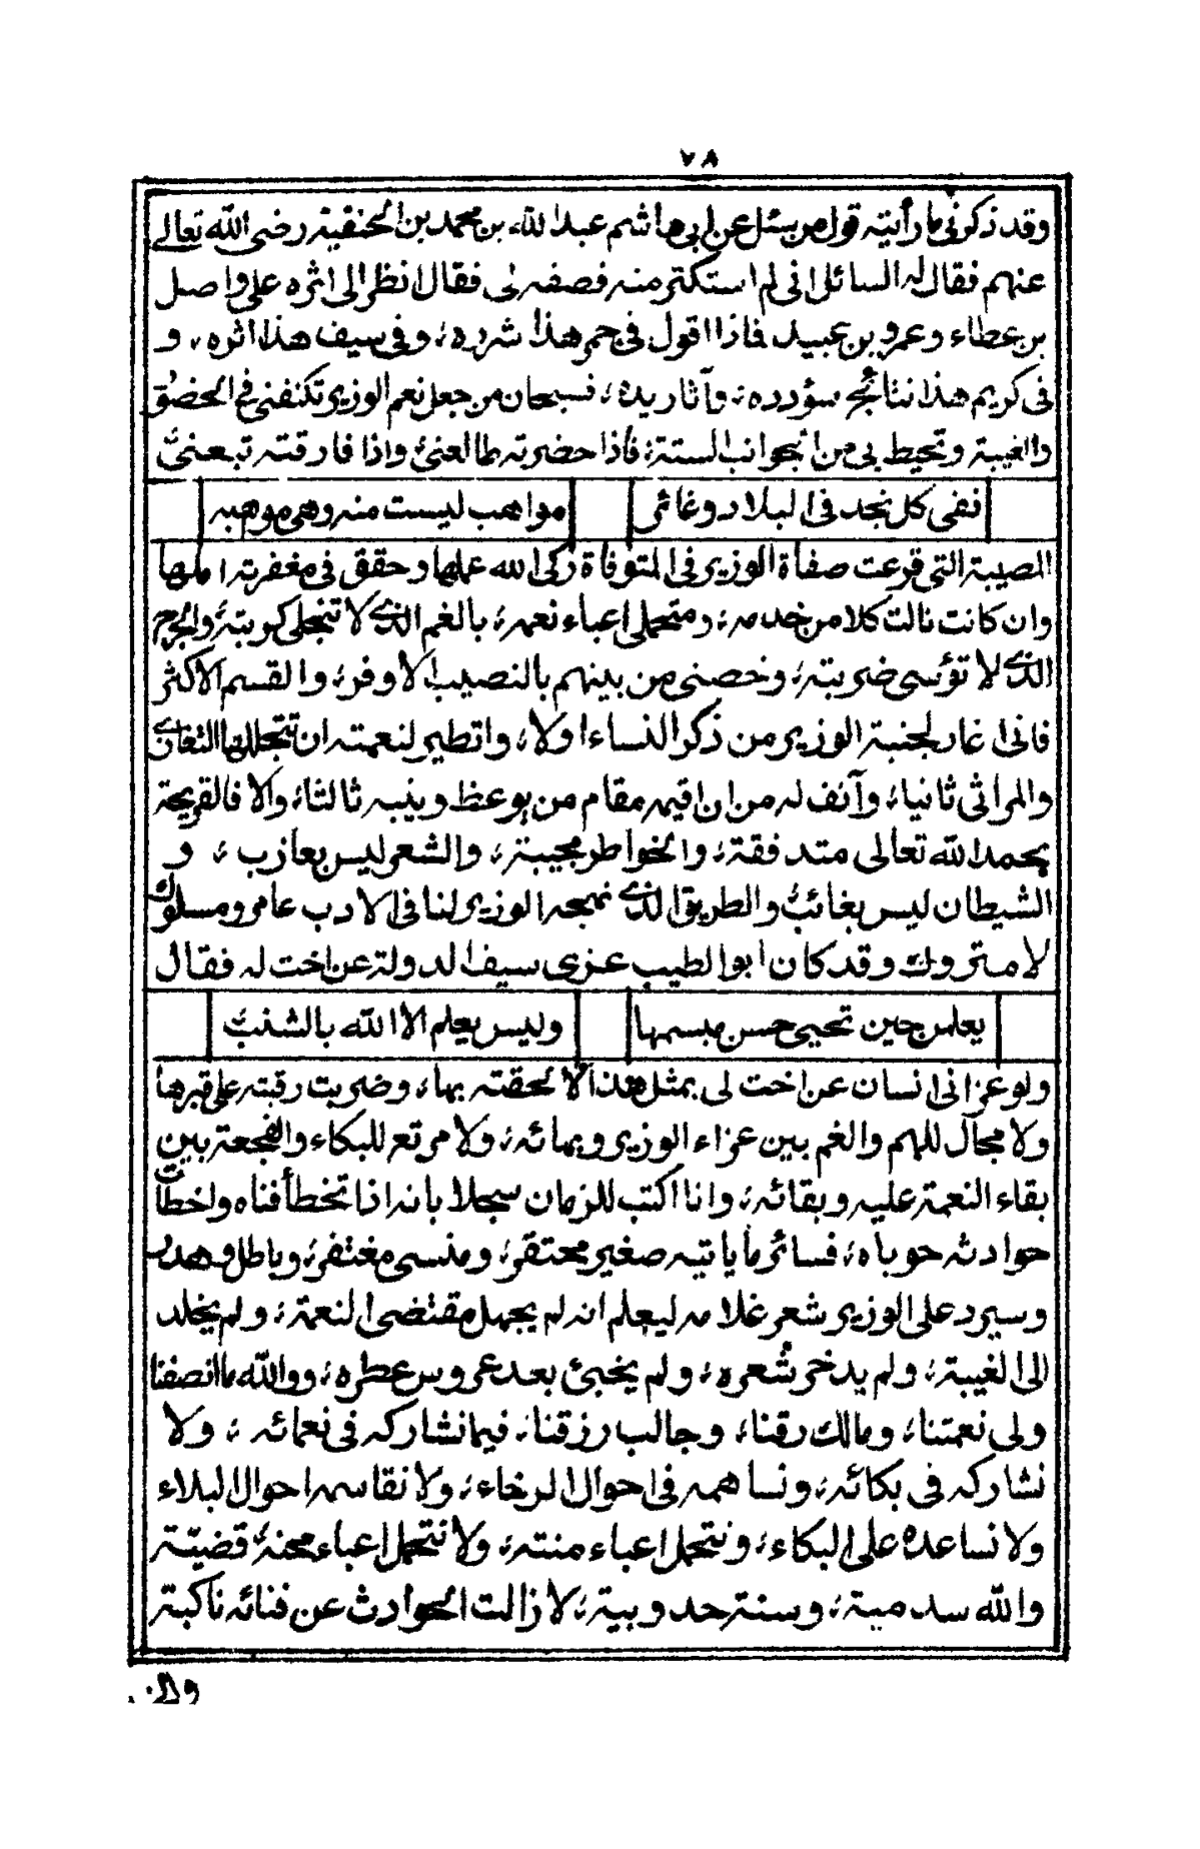 ٧٨
وقد ذكرني ما رأيته قول من سئل عن ابى هاشم عبد الله، بن محمد بن الحنفية رضى الله تعالى
عنهم فقال له السائل انى لم استكثر منه فصفه لى فقال انظر الى اثره على واصل
بن عطاء وعمرو بن عبيد فاذا اقول فى جمر هذا شرره؛ وفى سيف هذا اثره، و
فى كريم هذا نتائج سؤدده، وآثار يده، فسبحان من جعل نعم الوزير تكنفنى فى الحضرة
والغيبة وتحيط بى من الجوانب الستة؛ فاذا حضرته طالعنى واذا فارقته تبعنى
ففى كل نجد فى البلاد وغائر مواهب ليست منه وهى مواهبه
المصيبة التى قرعت صفاة الوزير فى المتوفاة زكى الله عملها وحقق فى مغفرته املها
وان كانت نالت كلا من خدمه؛ ومتحملى اعباء نعمه؛ بالغم الذى لا تنجلى كربته والجرح
الذى لا تؤسى ضربته؛ وخصنى من بينهم بالنصيب الاوفر؛ والقسم الاكثر
فانى اغار لجنبة الوزير من ذكر النساء اولا؛ واتطير لنعمته ان تتخللها التعازى
والمراثى ثانيا؛ وآنف له من ان اقيمه مقام من يوعظ وينبه ثالثا؛ والا فالقريحة
بحمد الله تعالى متدفقة؛ والخواطر مجيبة؛ والشعر ليس بعازب؛ و
الشيطان ليس بغائب والطريق الذى نهجه الوزير لنا فى الادب عامر ومسلوك
لا متروك وقد كان ابو الطيب عزى سيف الدولة عن اخت له فقال
يعلمن حين تحيى حسن مبسمها وليس يعلم الا الله بالشنب
ولو عزانى انسان عن اخت لى بمثل هذا لالحقته بها، وضربت رقبته على قبرها
ولا مجال للهم والغم بين عزاء الوزير وبهائه؛ ولا مرتع للبكاء والفجعة بين
بقاء النعمة عليه وبقائه؛ وانا اكتب للزمان سجلا بانه اذا تخطأ فناه واخطأت
حوادثه حوباه؛ فسائر ما ياتيه صغير محتقر؛ ومنسى مغتفر؛ وباطل وهدر
وسيرد على الوزير شعر غلامه ليعلم انه لم يجهل مقتضى النعمة؛ ولم يخلد
الى الغيبة؛ ولم يدخر شعره؛ ولم يخبئ بعد عروس عطره؛ ووالله ما انصفنا
ولى نعمتنا؛ ومالك رقنا؛ وجالب رزقنا، فيما نشاركه فى نعمائه؛ ولا
نشاركه فى بكائه؛ ونساهمه فى احوال الرخاء؛ ولا نقاسمه احوال البلاء
ولا نساعده على البكاء؛ ونتحمل اعباء منته؛ ولا نتحمل اعباء محنه؛ قضيّة
والله سدمية؛ وسنة حدوبية؛ لا زالت الحوادث عن فنائه ناكبة